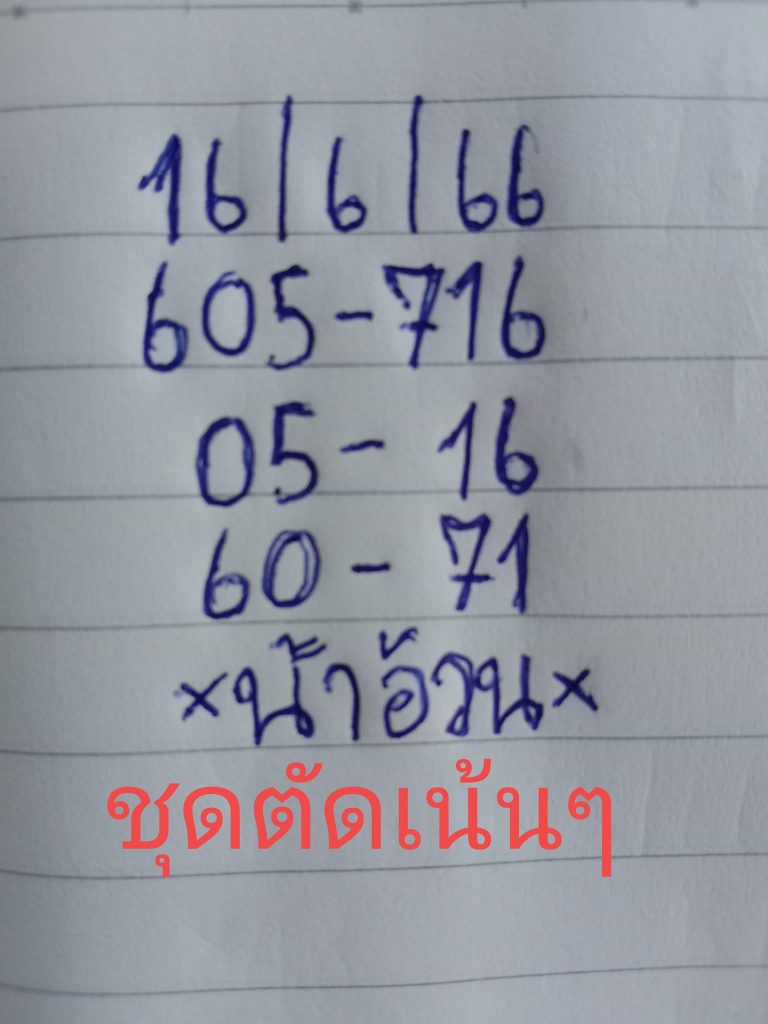 16/6/66
605-716
05-16
60-71
×น้าอ้วน×
ชุดตัดเน้นๆ